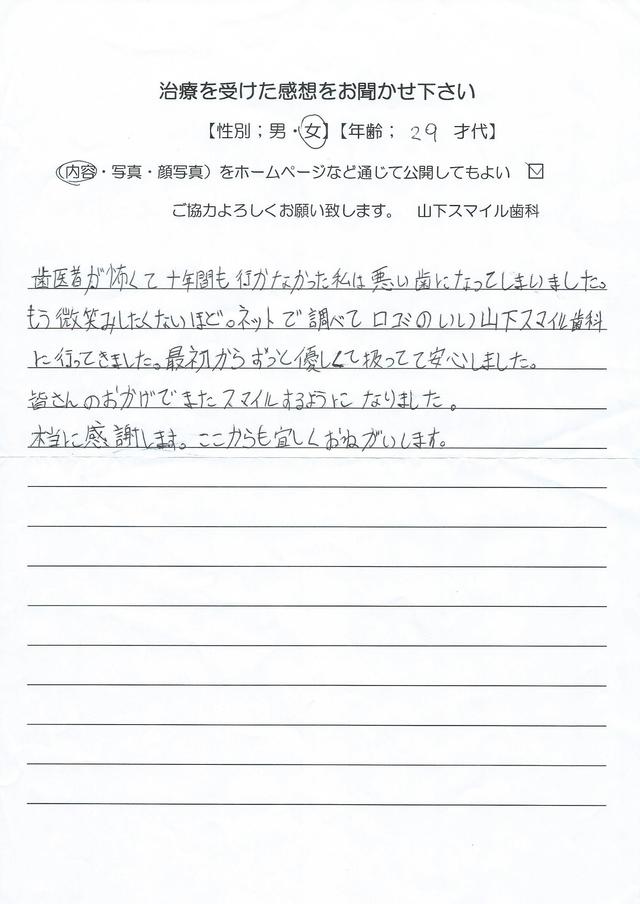 治療を受けた感想をお聞かせ下さい
【性別；男・女】【年齢； 29 才代】
（内容・写真・顔写真）をホームページなど通じて公開してもよい ☑
ご協力よろしくお願い致します。 山下スマイル歯科
歯医者が怖くて十年間も行かなかった私は悪い歯になってしまいました。
もう微笑みしたくないほど。ネットで調べて口コミのいい山下スマイル歯科
に行ってきました。最初からずっと優しくて扱ってて安心しました。
皆さんのおかげでまたスマイルするようになりました。
本当に感謝します。ここからも宜しくおねがいします。